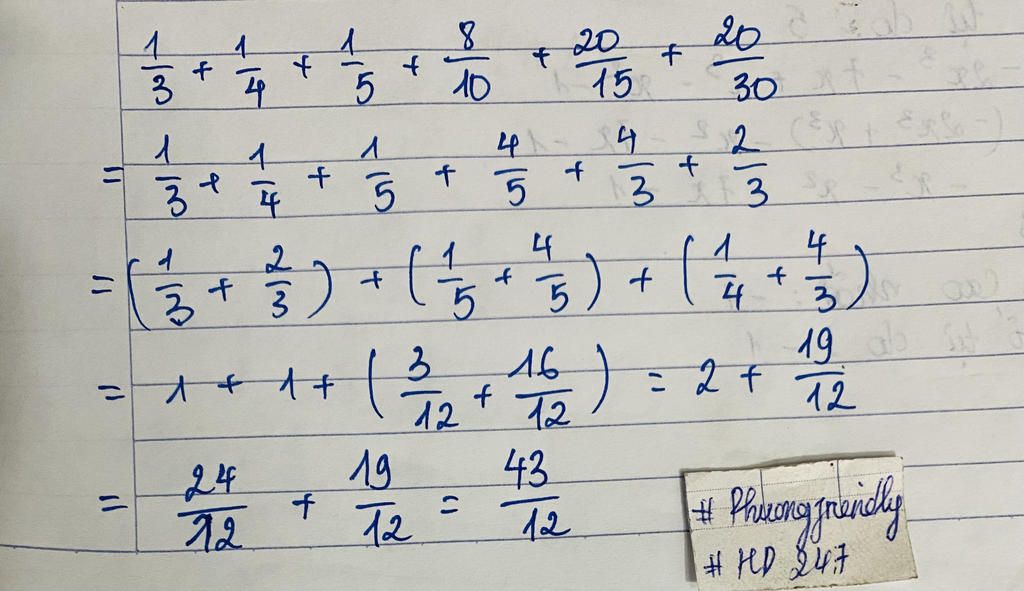 1/3 + 1/4 + 1/5 + 8/10 + 20/15 + 20/30
= 1/3 + 1/4 + 1/5 + 4/5 + 4/3 + 2/3
= (1/3 + 2/3) + (1/5 + 4/5) + (1/4 + 4/3)
= 1 + 1 + (3/12 + 16/12) = 2 + 19/12
= 24/12 + 19/12 = 43/12
# Phuongfriendly
# HD 247